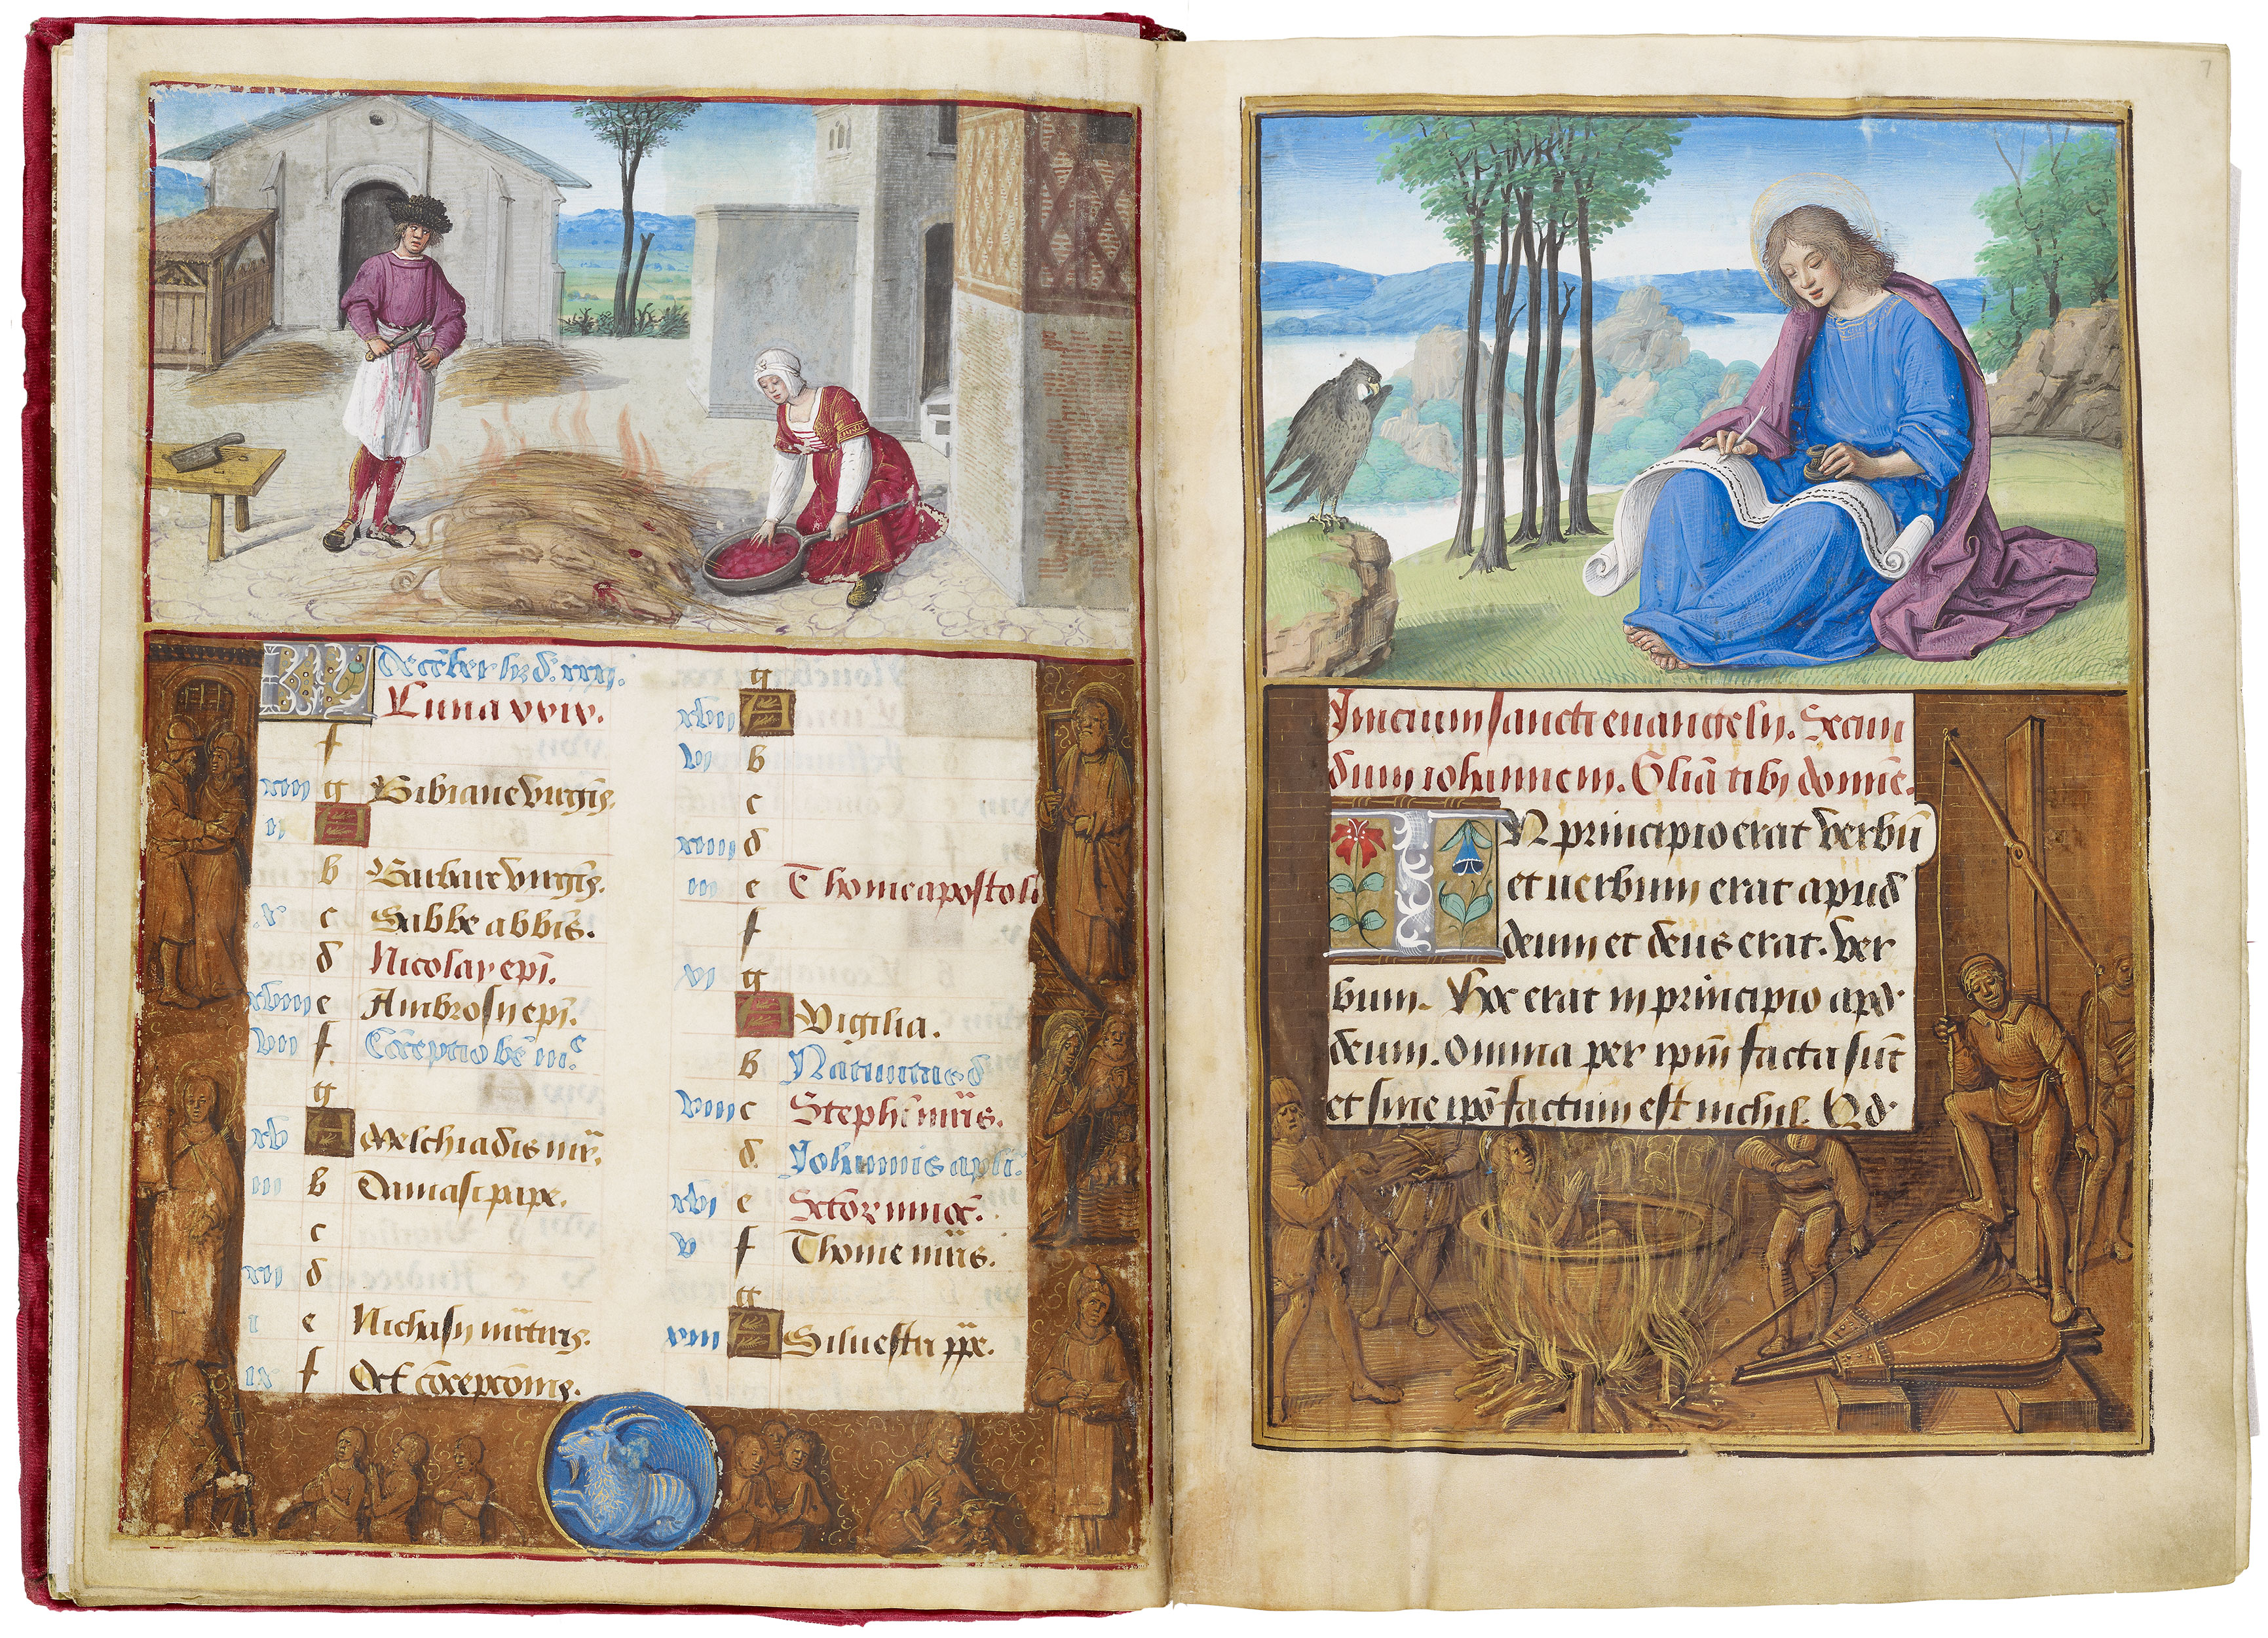 KL December hz d. xxxi.
Luna xxix.
f
xiii g Bibiane virgis.
ii A
b Barbare virgis.
x c Sabbe abbis.
d Nicolay epi.
xviii e Ambrosii epi.
vii f Cōceptio be me
g
xv A Melchiadis mr.
iiii b Damasi pape.
c
xii d
i e Nichasii martiris.
ix f Oct cōceptōnis.
g
xvii A
vi b
c
xiiii d
iii e Thome apostoli
f
xi g
A Vigilia.
b Natiuitas d
viii c Stephi mris.
d Johannis apli.
xvi e Sctor innoc.
v f Thome mris.
g
xiii A Siluestri ppe.
7
Inicium sancti euangelii. Secun
dum iohannem. Glīa tibi domine.
IN principio erat verbū
et uerbum erat apud
deum et deus erat. ver
bum. Hoc erat in principio apd
deum. Omnia per ipm facta sūt
et sine ipō factum est nichil. Qd